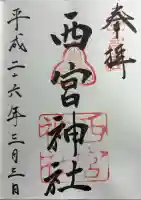 奉拝
西宮神社
平成二十六年三月三日